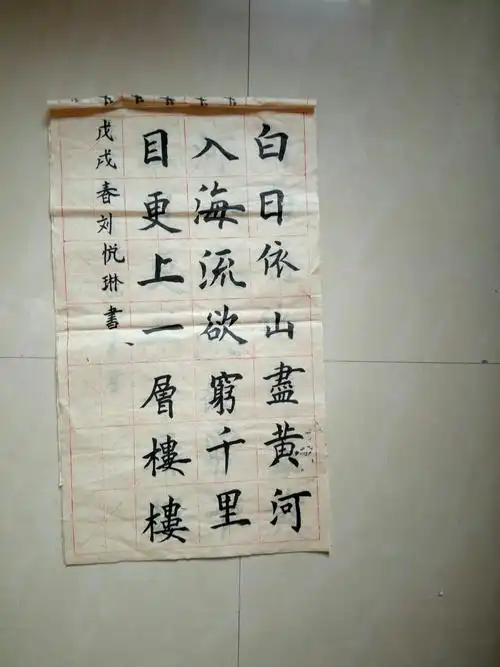 白日依山盡黄河
入海流欲窮千里
目更上一層樓樓
戊戌春刘悦琳書